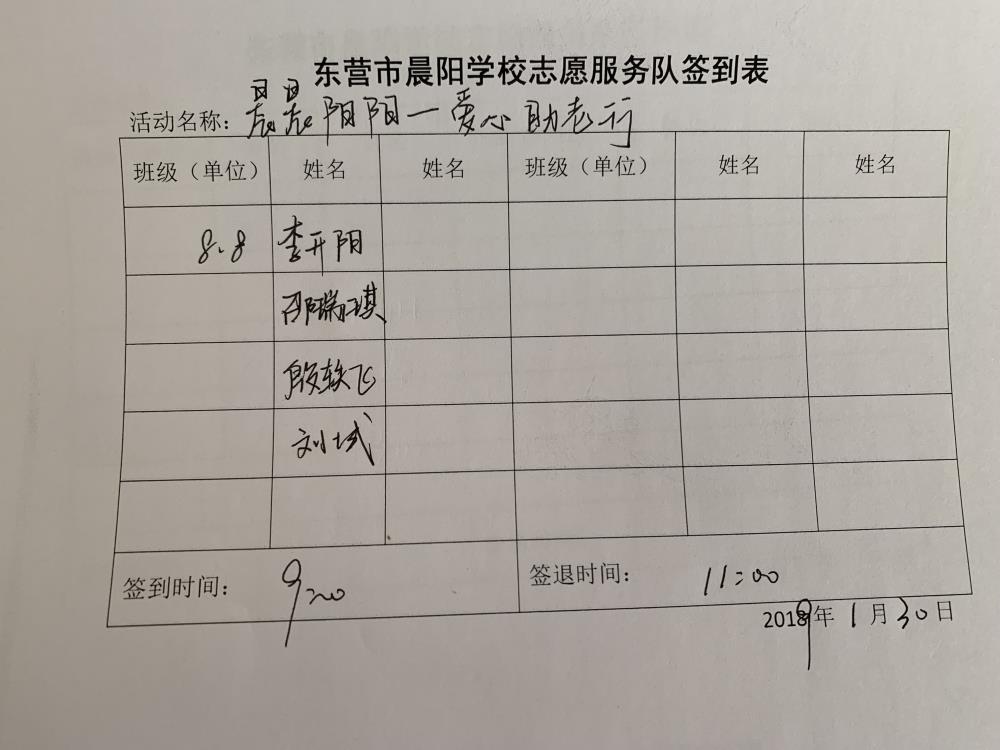 东营市晨阳学校志愿服务队签到表
活动名称：晨晨阳阳一爱心助老行
班级（单位） 姓名 姓名 班级（单位） 姓名 姓名
8.8 李开阳
邵瑞琪
殷轶飞
刘域
签到时间： 920 签退时间： 11:00
2019年1月30日